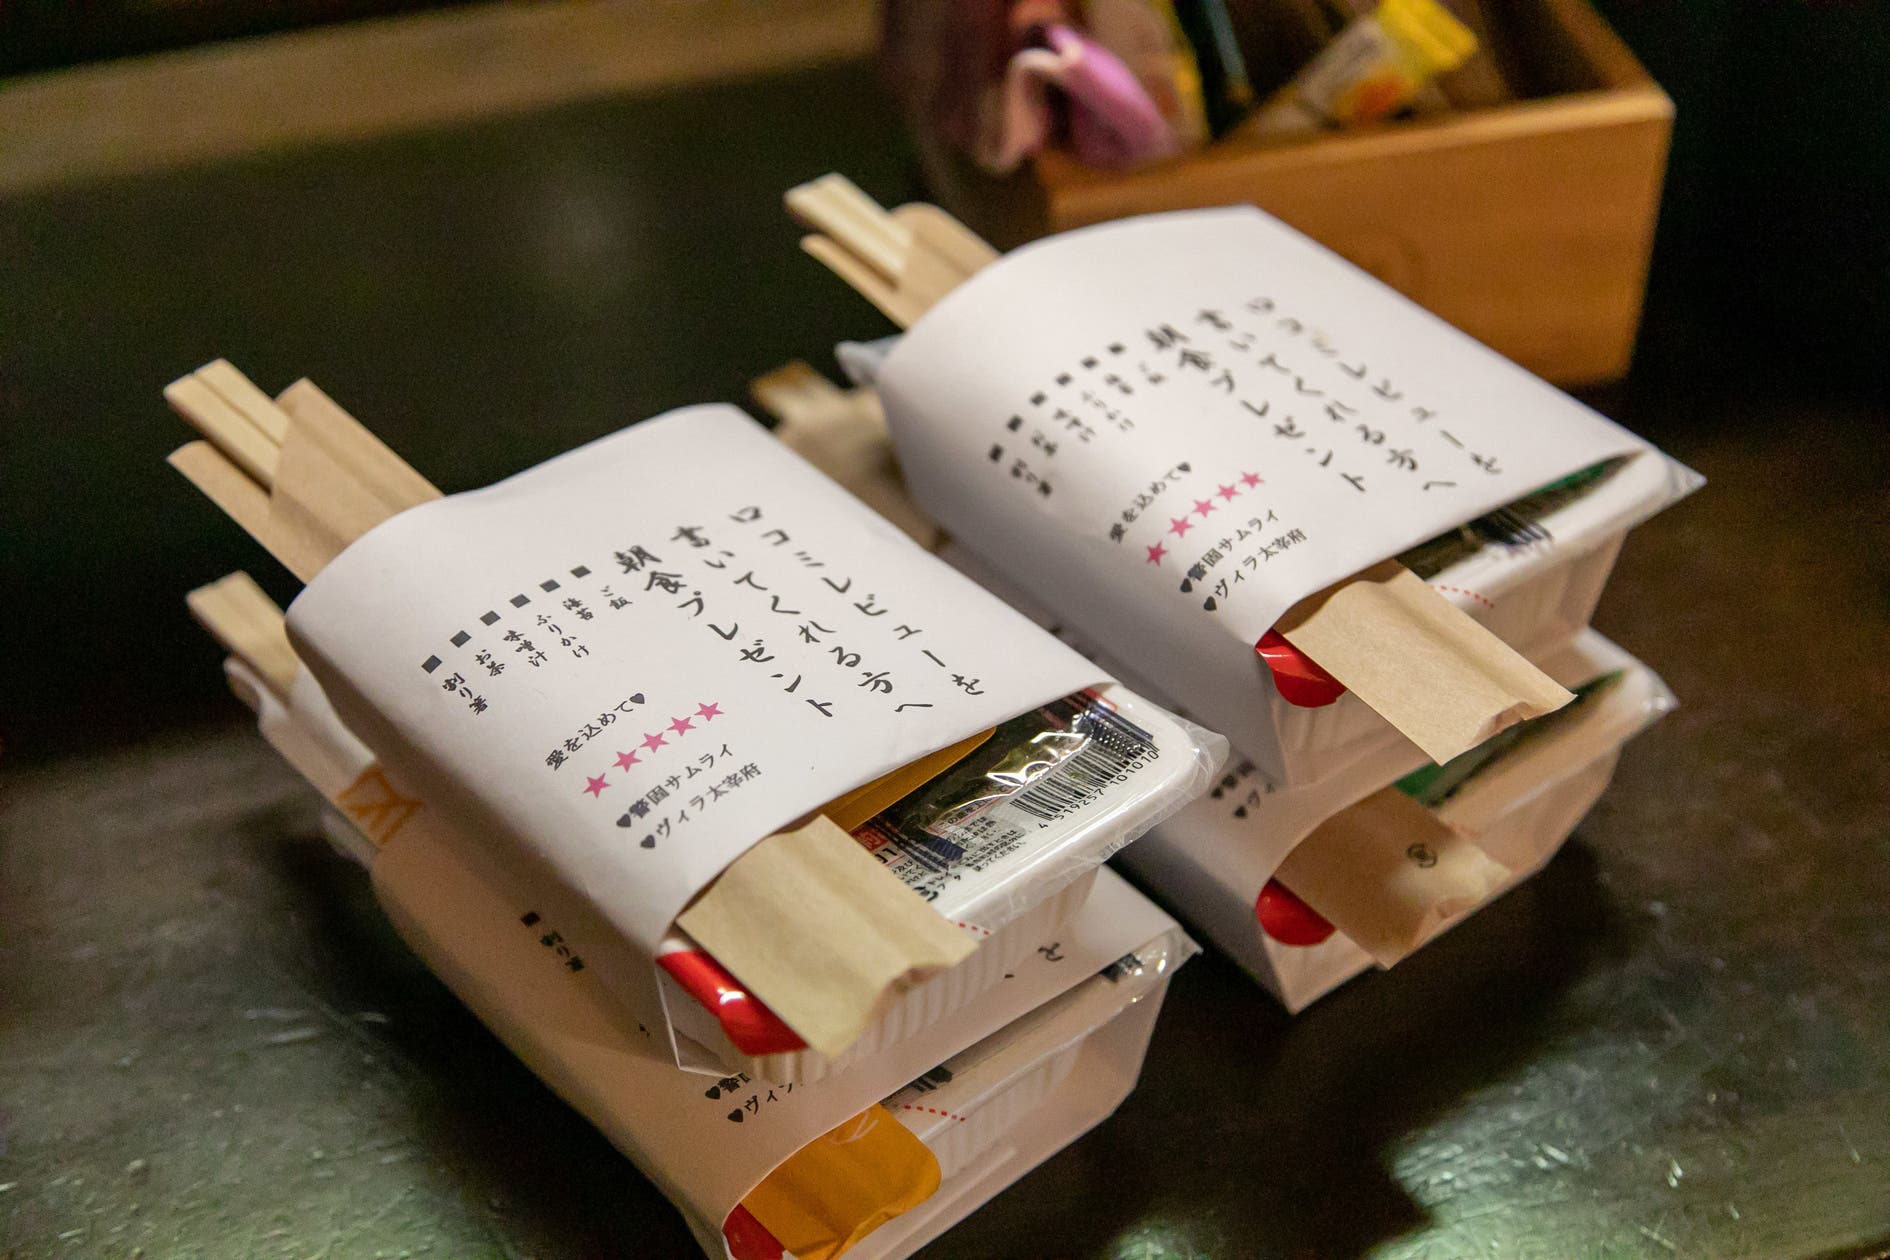 口コミレビューを
書いてくれる方へ
朝食プレゼント
■ご飯
■海苔
■ふりかけ
■味噌汁
■お茶
■割り箸
愛を込めて♥
★★★★★
♥警固サムライ
♥ヴィラ太宰府
4 519257 101010
口コミレビューを
書いてくれる方へ
朝食プレゼント
■ご飯
■海苔
■ふりかけ
■味噌汁
■お茶
■割り箸
愛を込めて♥
★★★★★
♥警固サムライ
♥ヴィラ太宰府
を
へ
■割り箸
♥警
♥ヴィラ
♥警
♥ヴィ